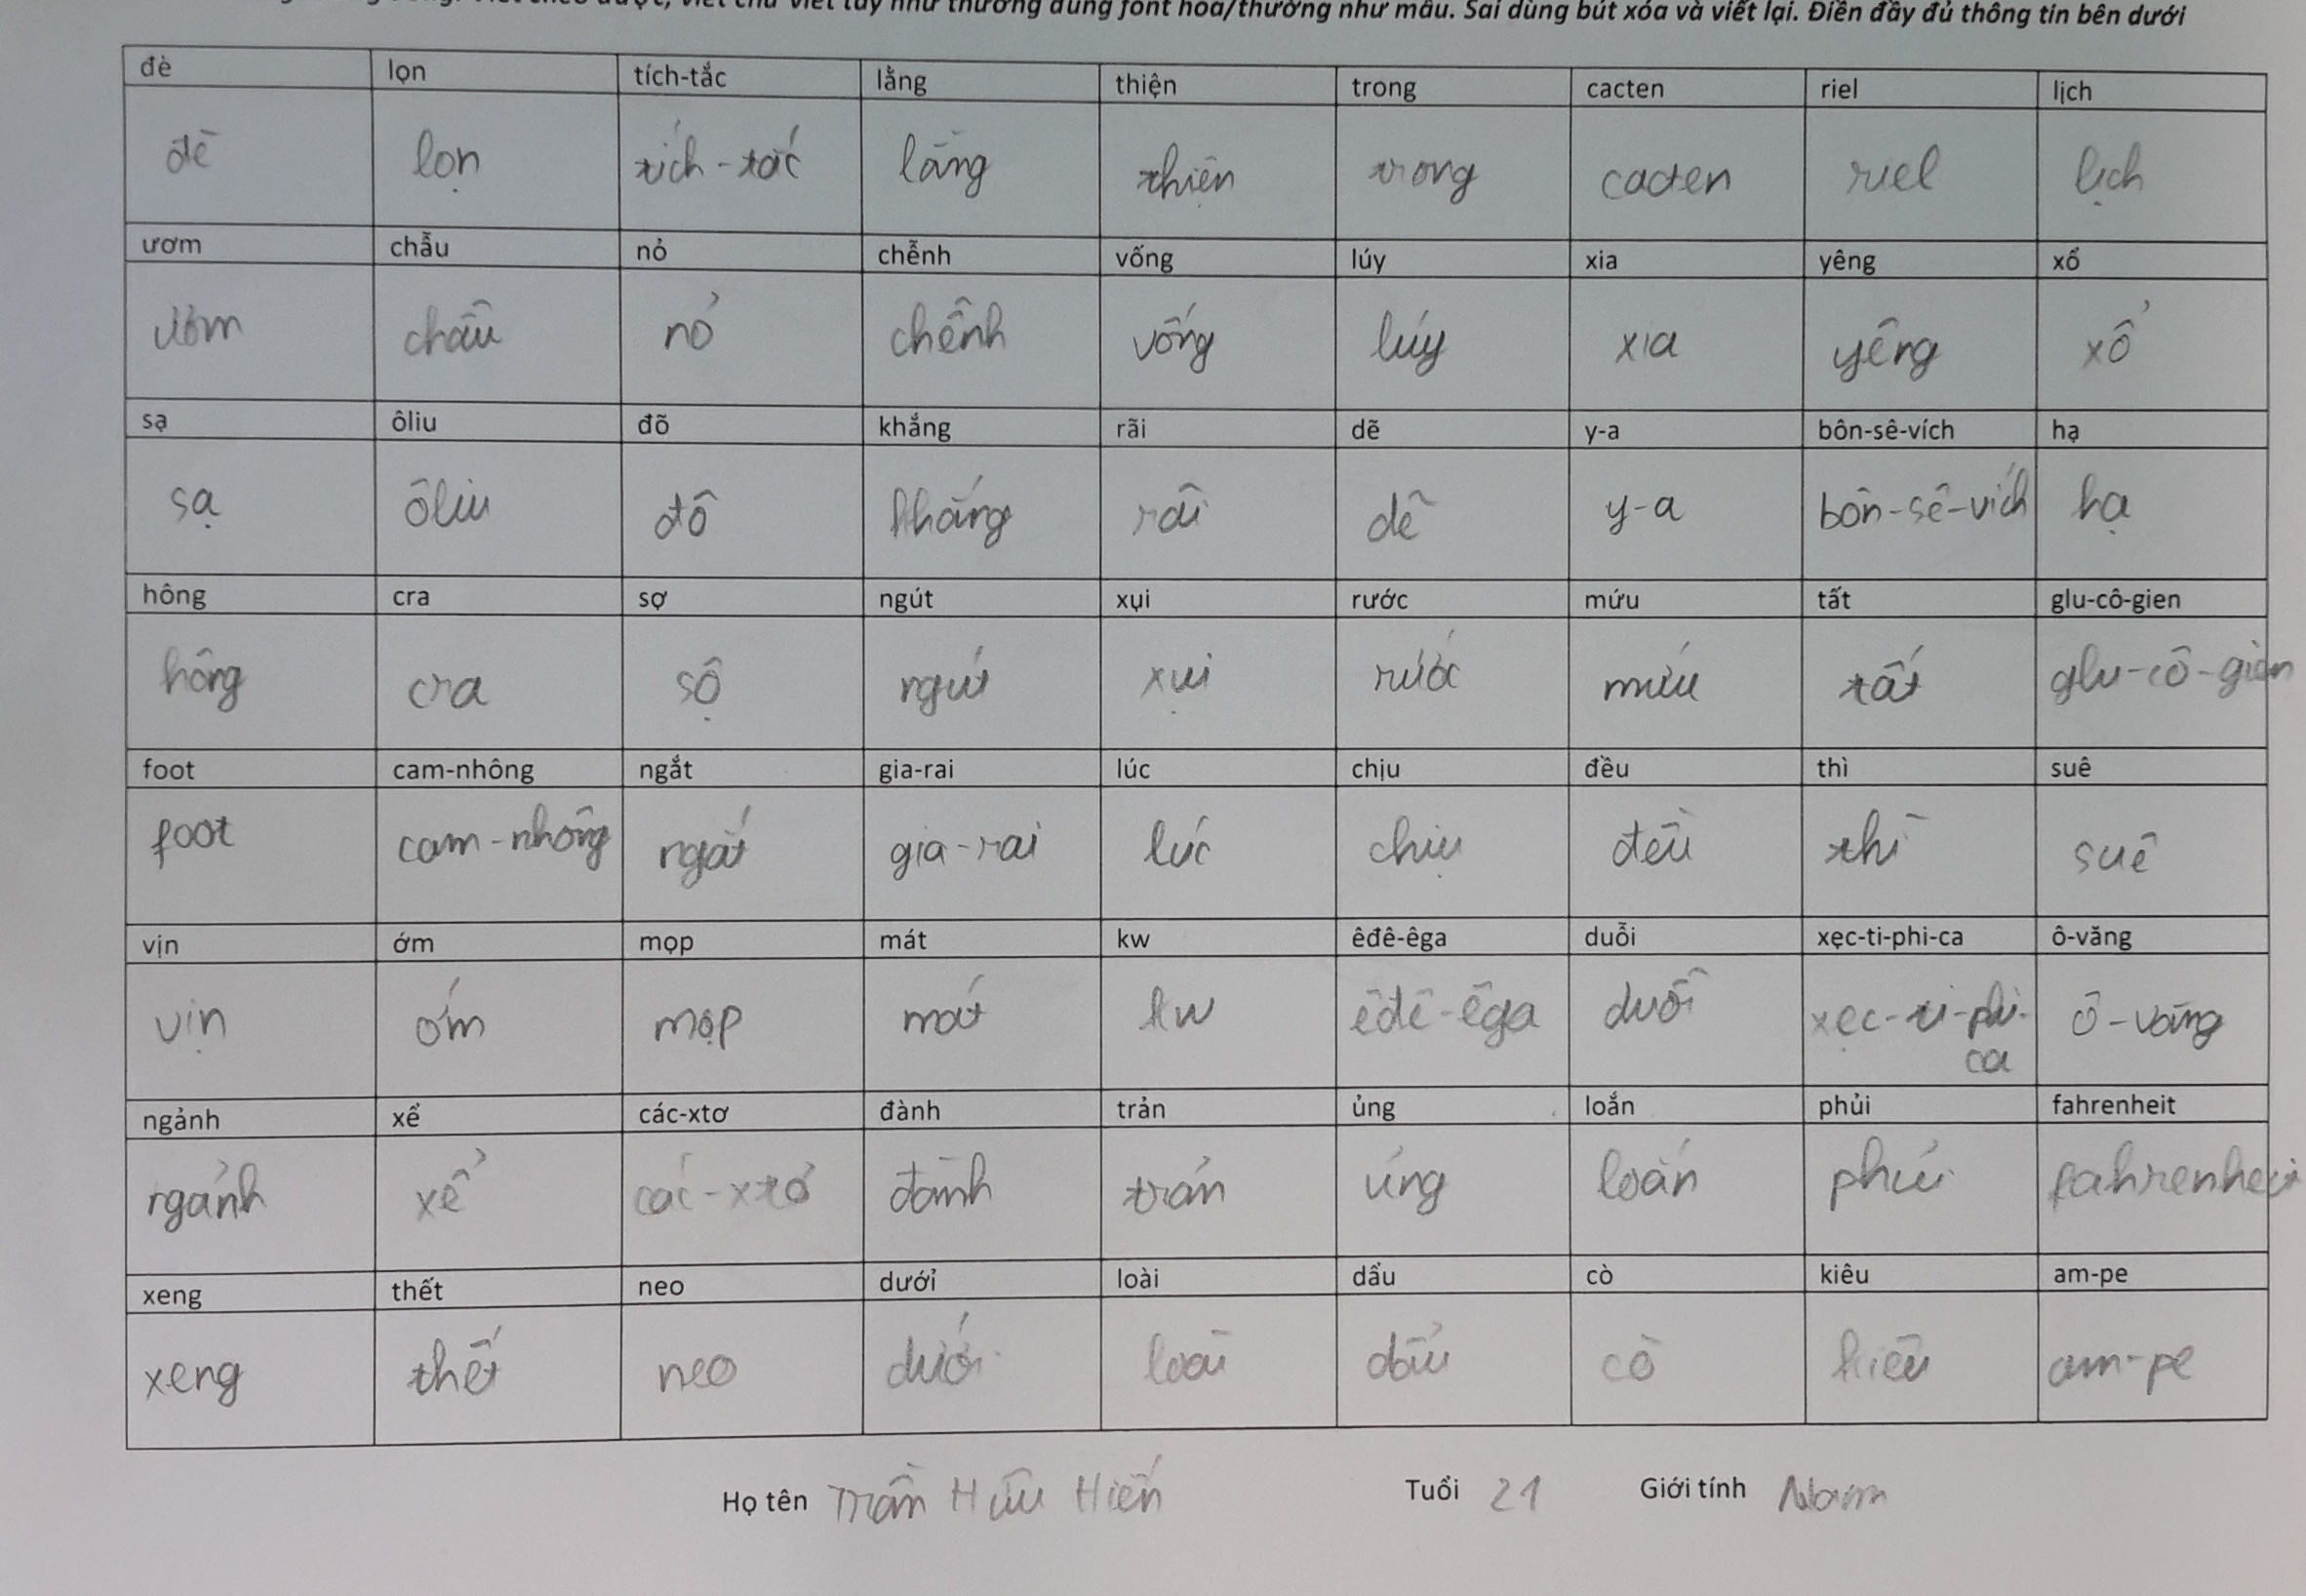 viết chữ viết tay như thường dùng font hoa/thường như mẫu. Sai dùng bút xóa và viết lại. Điền đầy đủ thông tin bên dưới
đè lọn tích-tắc lằng thiện trong cacten riel lịch
đè lọn tích-tắc lằng thiện trong cacten riel lịch
ươm chẫu nỏ chễnh vống lúy xia yêng xổ
ươm chẫu nỏ chễnh vống lúy xia yêng xổ
sạ ôliu đõ khẳng rãi dẽ y-a bôn-sê-vích hạ
sạ ôliu đõ khắng rãi dẽ y-a bôn-sê-vích hạ
hông cra sợ ngút xụi rước mứu tất glu-cô-gien
hông cra sợ ngút xụi rước mứu tất glu-cô-gien
foot cam-nhông ngắt gia-rai lúc chịu đều thì suê
foot cam-nhông ngắt gia-rai lúc chịu đều thì suê
vịn ớm mọp mát kw êđê-êga duỗi xẹc-ti-phi-ca ô-văng
vịn ớm mọp mát kw êđê-êga duỗi xẹc-ti-phi- ô-văng
ca
ngảnh xể các-xtơ đành trản ủng loắn phủi fahrenheit
ngảnh xể các-xtơ đành trản ủng loắn phủi fahrenheit
xeng thết neo dưới loài dẩu cò kiêu am-pe
xeng thết neo dưới loài dẩu cò kiêu am-pe
Họ tên Trần Hữu Hiến Tuổi 21 Giới tính Nam